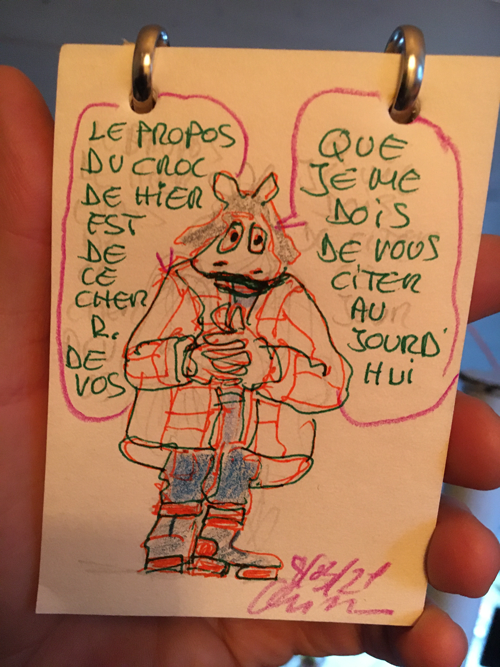 LE PROPOS
DU CROC
DE HIER
EST
DE
CE
CHER
R.
DE
VOS
QUE
JE ME
DOIS
DE VOUS
CITER
AU
JOURD'
HUI